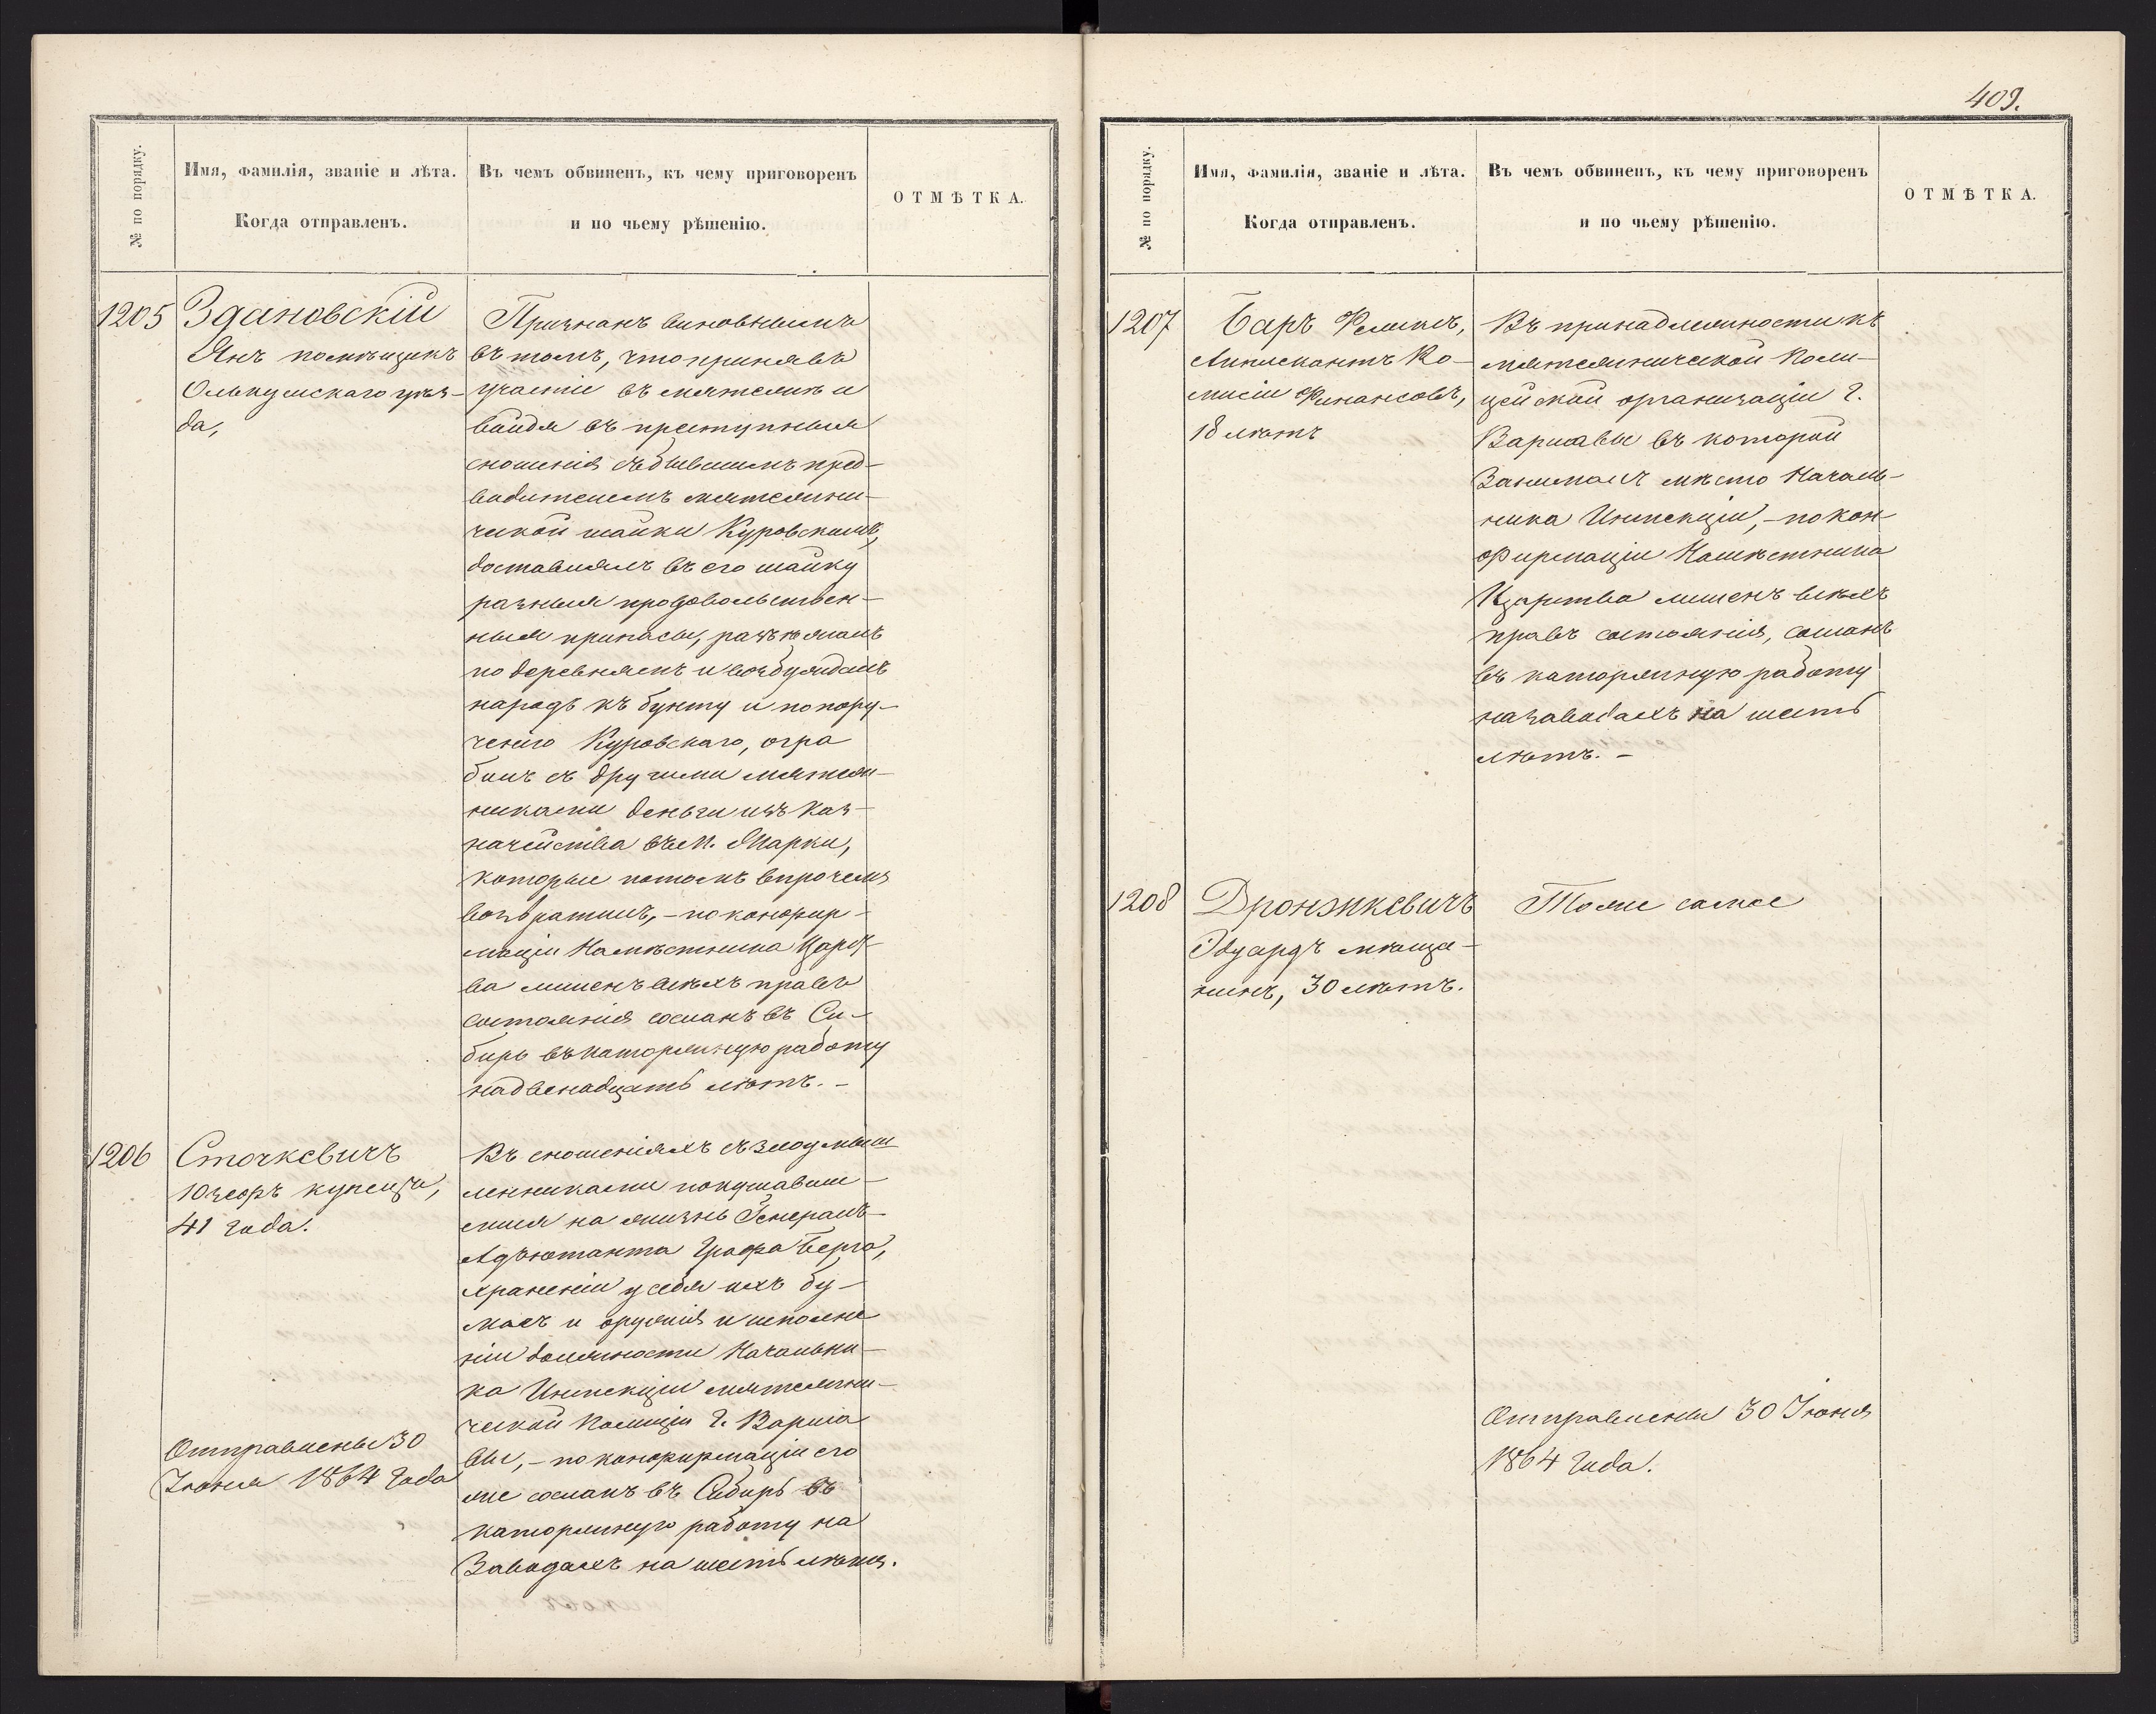 № по порядку.
Имя, фамилія, званіе и лѣта.
Когда отправленъ.
Въ чемъ обвиненъ, къ чему приговоренъ
и по чьему рѣшенію.
ОТМѢТКА.
1205
Здановскій
Янъ помѣщикъ
Олькушскаго уѣз-
да,
Признанъ виновнымъ
въ томъ, что принявъ
участіе въ мятежѣ и
войдя въ преступныя
сношенія съ бывшимъ пред-
водителемъ мятежни-
ческой шайки Куровскимъ,
доставлялъ въ его шайку
разныя продовольствен-
ныя припасы, разъѣзжалъ
по деревнямъ и возбуждалъ
народъ къ бунту и по пору-
ченію Куровскаго, огра
билъ съ другими мятеж-
никами деньги изъ Каз-
начейства въ м.
которые потомъ впрочемъ
возвратилъ, – по конфир-
маціи Намѣстника Царст-
ва лишенъ всѣхъ правъ
состоянія сосланъ въ Си-
бирь въ каторжную работу
на двенадцать лѣтъ. –
1206
Сточкевичъ
Юзефъ купецъ,
41 года.
Отправлены 30
Іюня 1864 года
Въ сношеніяхъ съ злоумыш
ленниками покушавши-
мися на жизнь Генералъ-
Адъютанта Графа Берга,
храненіи у себя ихъ бу-
магъ и оружія и исполне
ніи должности Начальни-
ка Инспекціи мятежни-
ческой Полиціи г. Варша
вы, – по конфирмаціи его
же сосланъ въ Сибирь въ
каторжную работу на
Заводахъ на шесть лѣтъ.
409.
№ по порядку.
Имя, фамилія, званіе и лѣта.
Когда отправленъ.
Въ чемъ обвиненъ, къ чему приговоренъ
и по чьему рѣшенію.
ОТМѢТКА.
1207
Баръ Феликсъ,
Апликантъ Ко-
мисіи Финансовъ,
18 лѣтъ
Въ принадлежности къ
мятежнической Поли-
цейской организаціи г.
Варшавы въ которой
Занималъ мѣсто Началь-
ника Инспекціи, – по кон-
фирмаціи Намѣстника
Царства лишенъ всѣхъ
правъ состоянія, сосланъ
въ каторжную работу
на заводахъ на шесть
лѣтъ. –
1208
Дронжкевичъ
Эдуардъ мѣща-
нинъ, 30 лѣтъ.
Тоже самое
Отправлены 30 Іюня
1864 года.